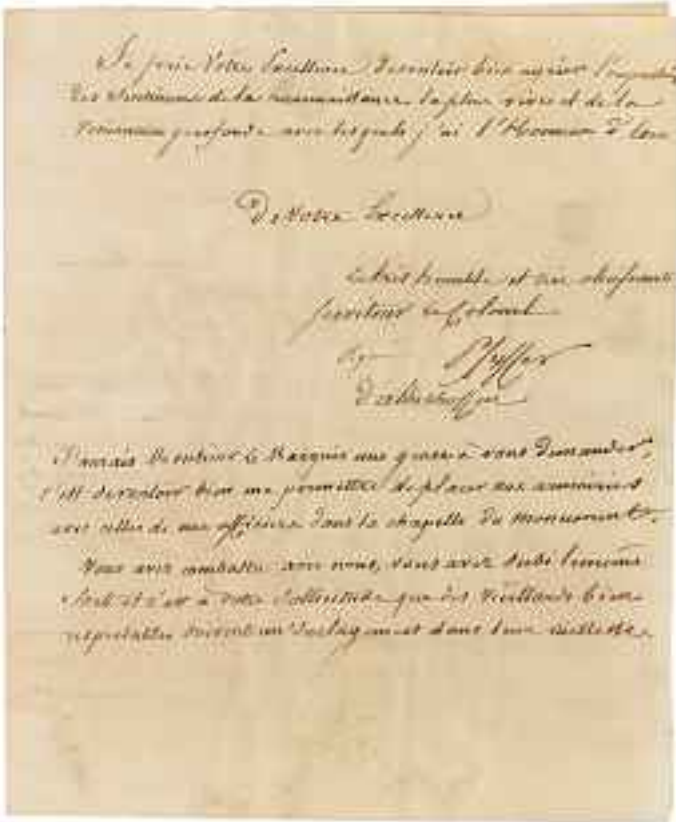 Je prie Votre Excellence de vouloir bien agréer l'expression
des sentimens de la reconnaissance la plus vive et de la
vénération profonde avec lesquels j'ai l'Honneur d'être
De Votre Excellence
Le très humble et très obéissant
serviteur le Colonel
Pfyffer
d'altishoffen
J'aurais Monsieur le Marquis une grace à vous demander,
c'est de vouloir bien me permettre de placer vos armoiries
avec celles de nos officiers dans la chapelle du monument.
Vous avez combattu avec nous, vous avez subi le même
sort et c'est à votre sollicitude que des vieillards bien
respectables doivent un soulagement dans leur vieillesse.